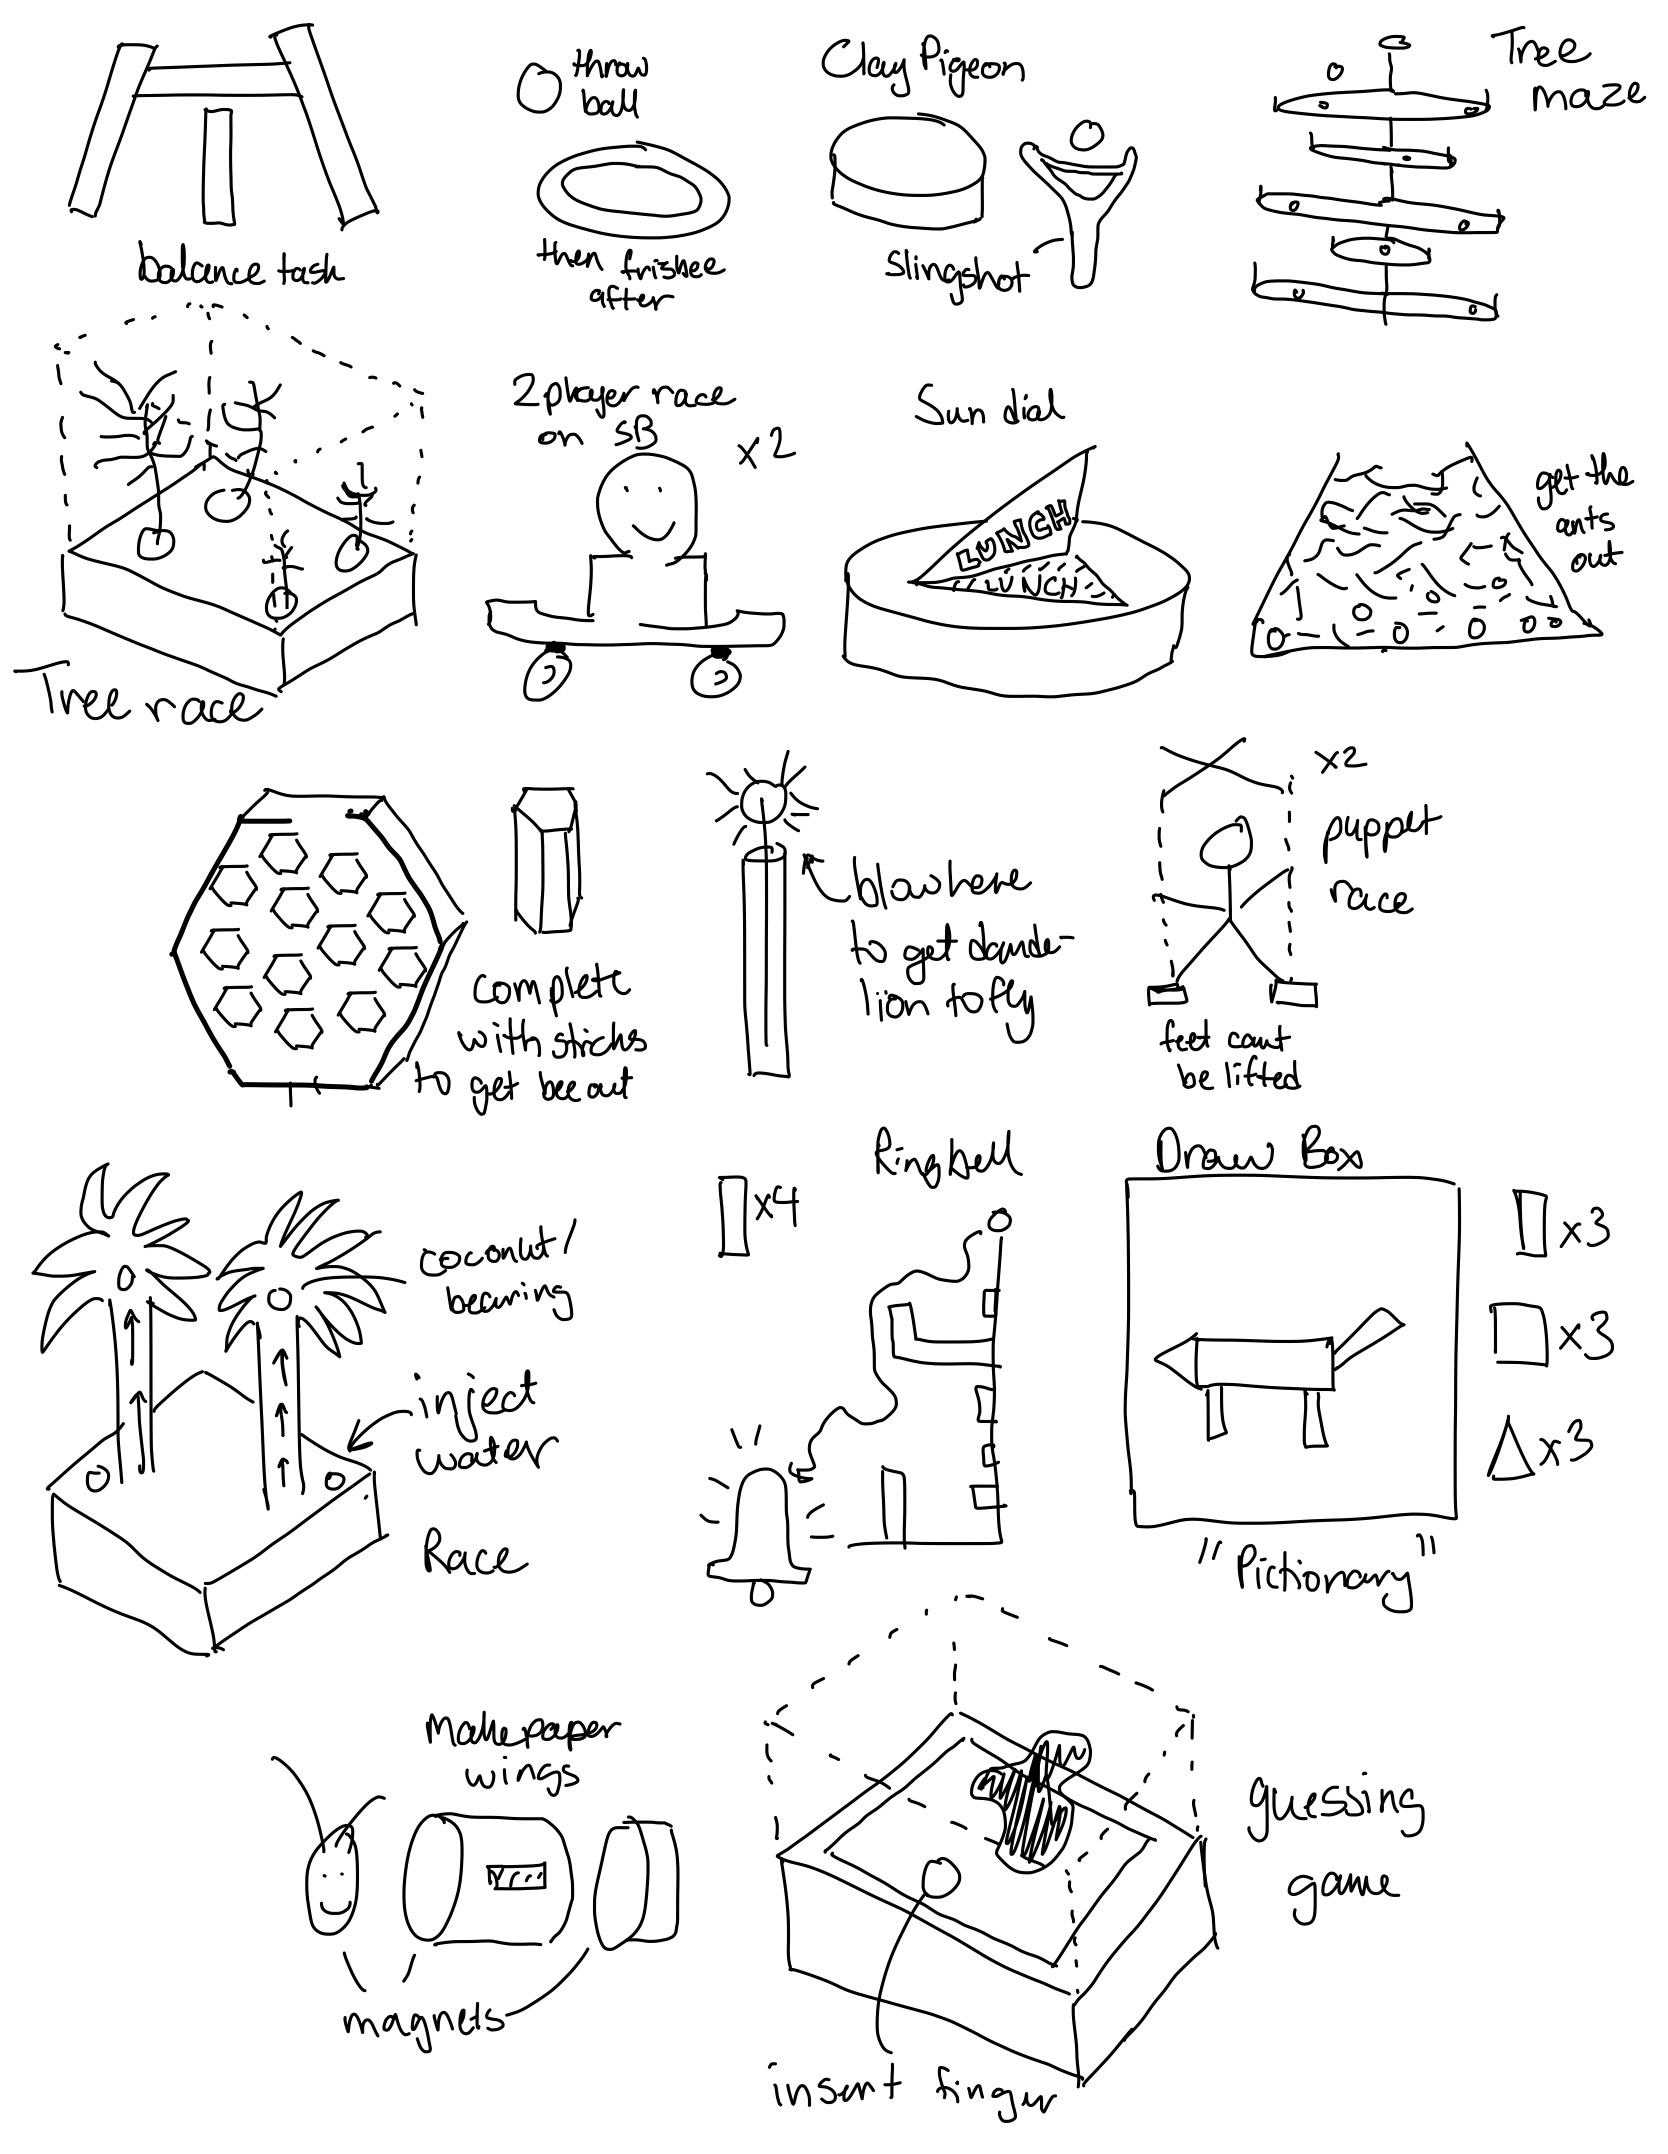 throw
ball
then frisbee
after
balance task
Clay Pigeon
Slingshot
Tree
maze
Tree race
2 player race
on SB
x2
Sun dial
LUNCH
LUNCH
get the
ants
out
complete
with sticks
to get bee out
blow here
to get dande-
lion to fly
x2
puppet
race
feet cant
be lifted
coconut/
bearing
inject
water
Race
x4
Ring bell
Draw Box
x3
x3
x3
"Pictionary"
Make paper
wings
magnets
guessing
game
insert finger